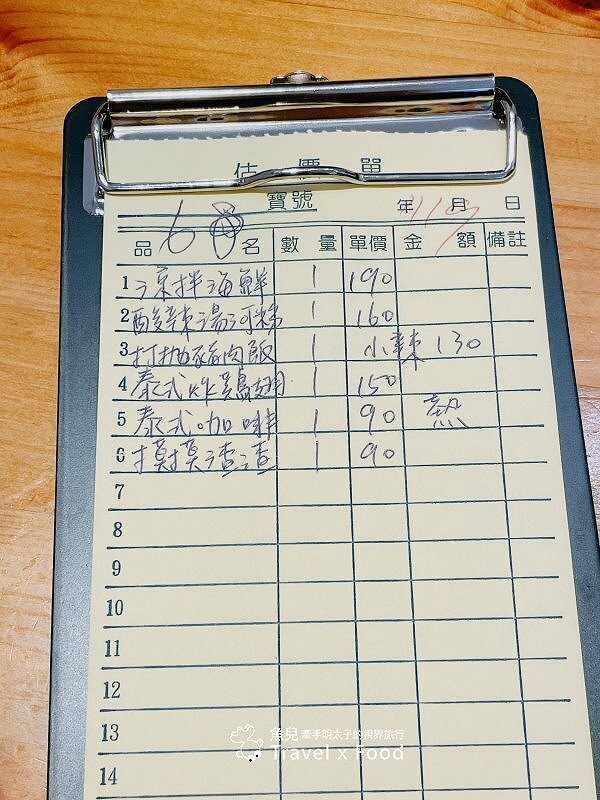 估價單
寶號 年 月 日
品 6 名 數量 單價 金額 備註
1 涼拌海鮮 1 190
2 酸辣湯河粉 1 160
3 打拋豬肉飯 1 小辣 130
4 泰式炸雞翅 1 150
5 泰式咖啡 1 90 熱
6 摸摸渣渣 1 90
7
8
9
10
11
12
13
14
魚兒 牽手明太子的視界旅行
Travel x Food